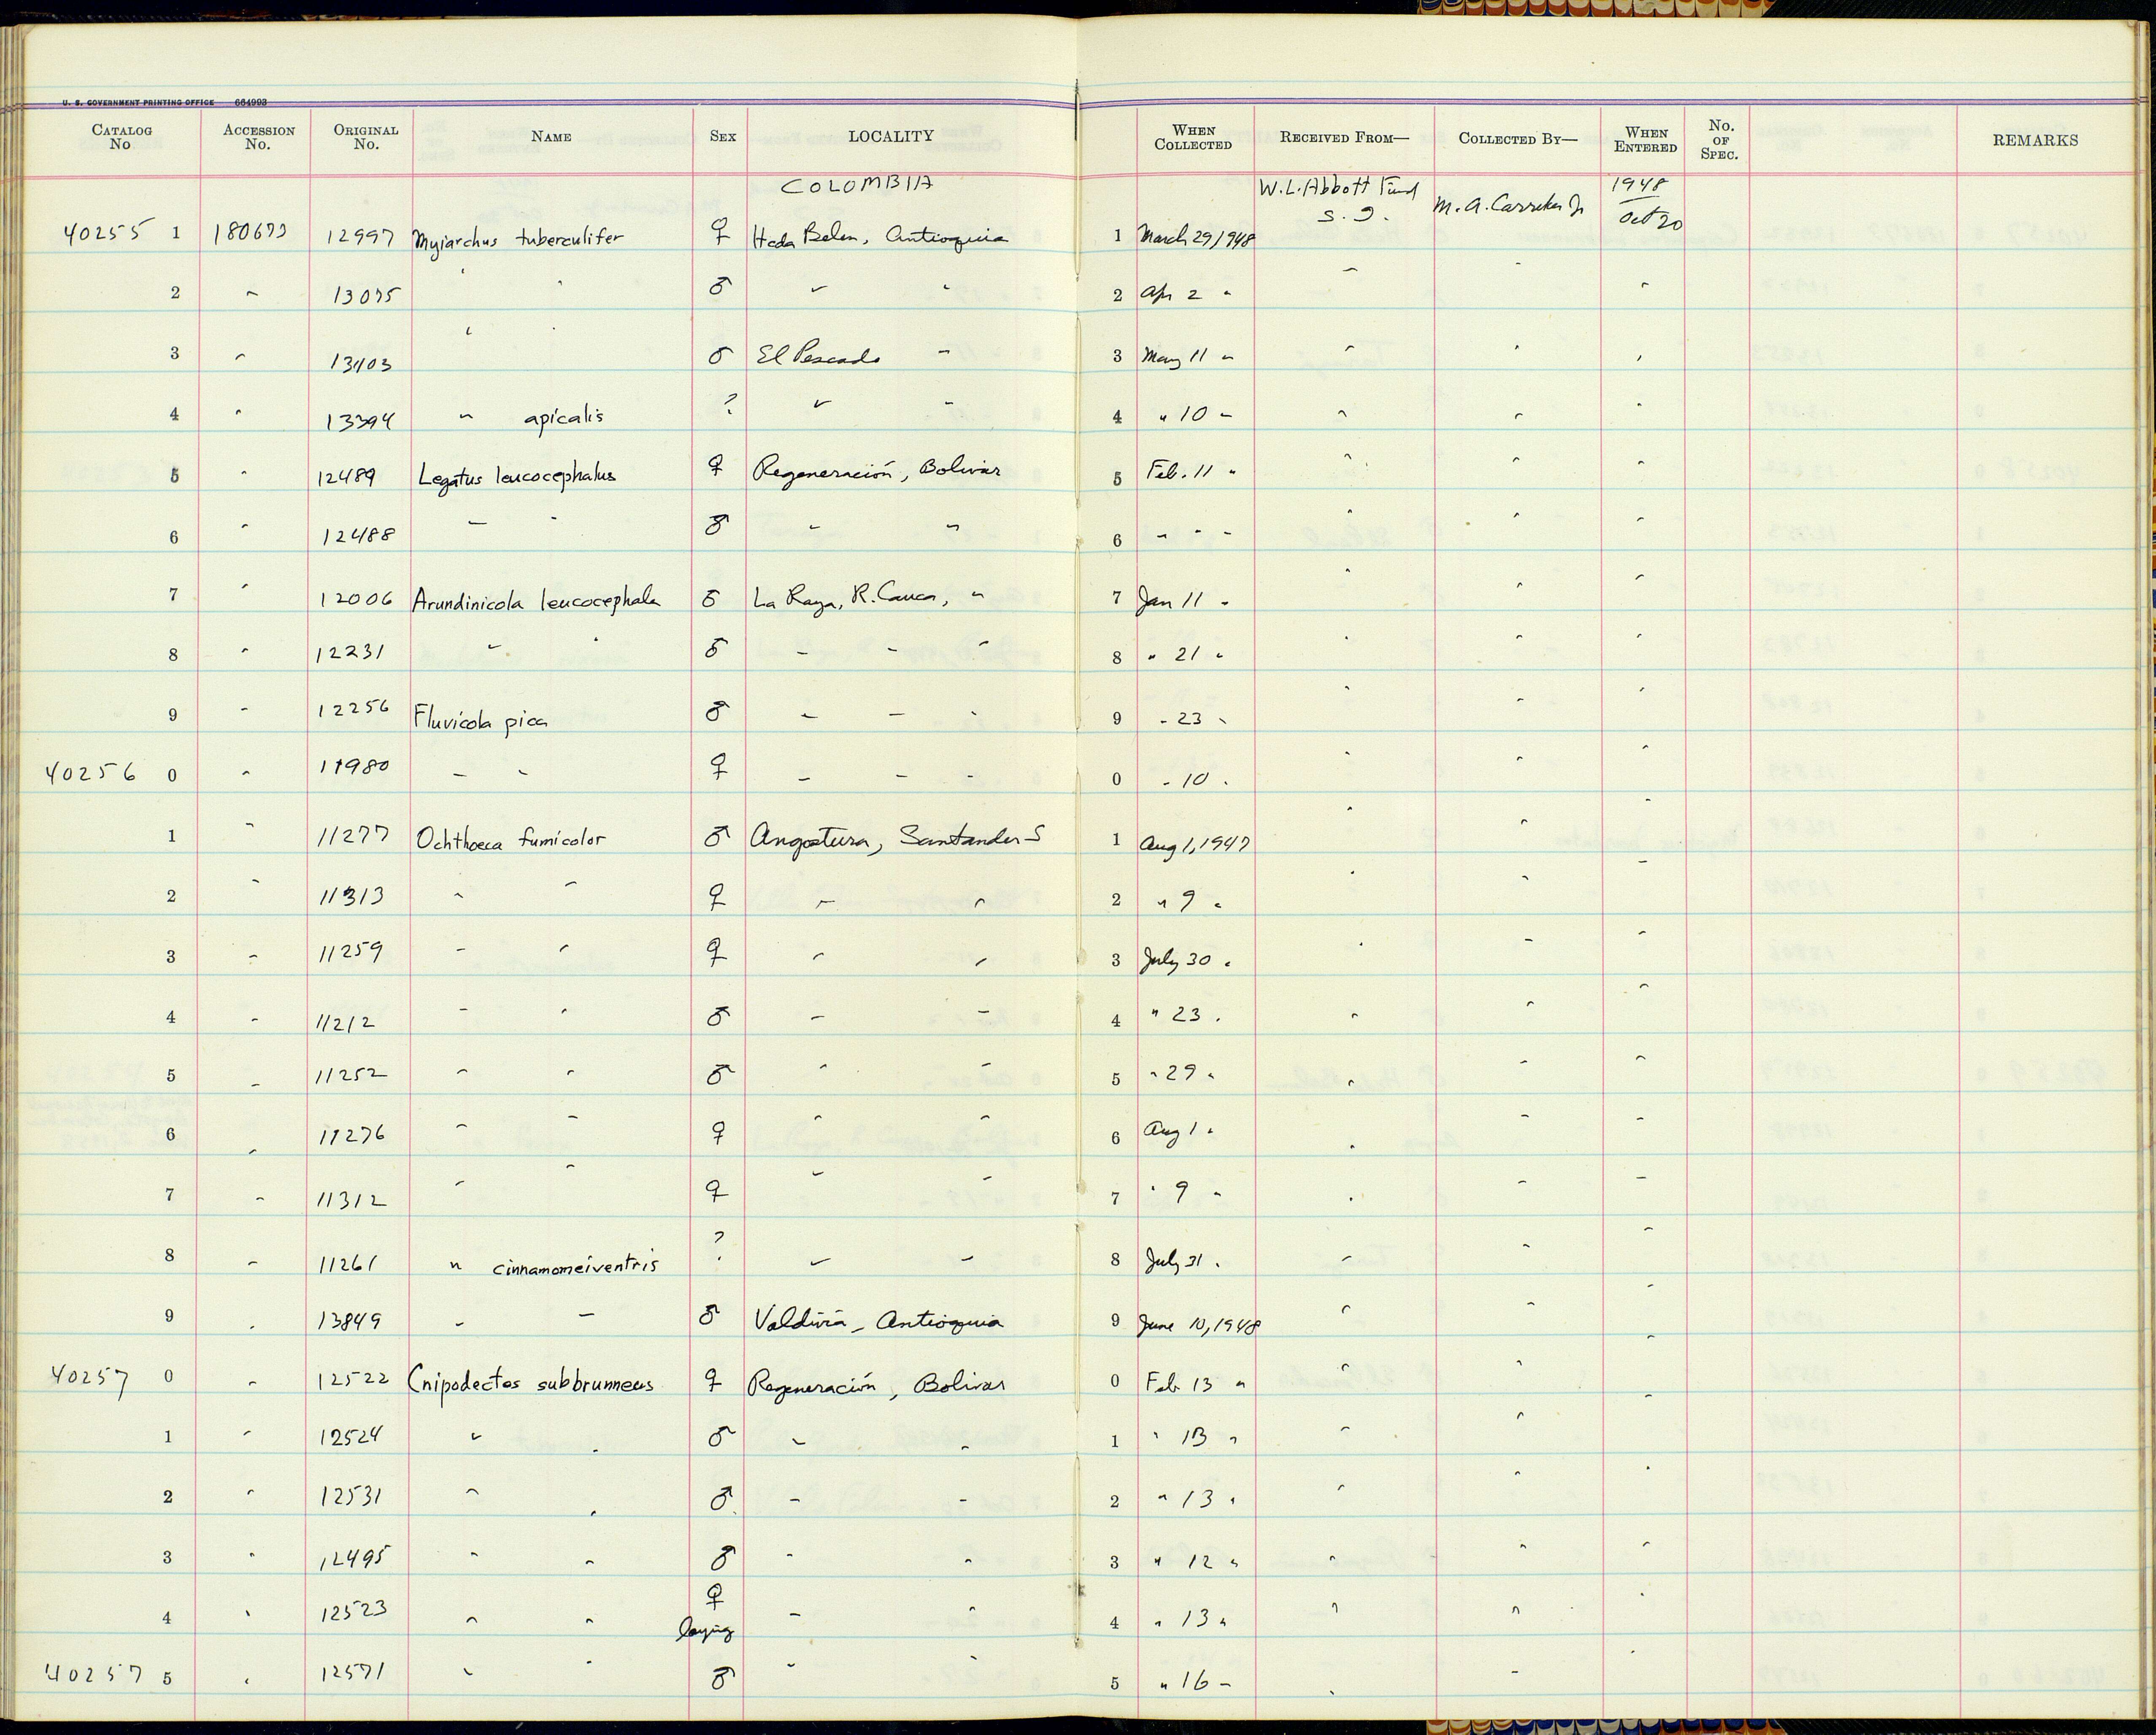 U. S. GOVERNMENT PRINTING OFFICE 664993
CATALOG No ACCESSION No. ORIGINAL No. NAME SEX LOCALITY WHEN COLLECTED RECEIVED FROM— COLLECTED BY— WHEN ENTERED No. OF SPEC. REMARKS
COLOMBIA W. L. Abbott Fund S. I. M. A. Carriker Jr 1948 Oct 20
40255 1 180679 12997 Myiarchus tuberculifer ♀ Hcda Belen, Antioquia 1 March 29, 1948
2 " 13075 " " ♂ " " 2 Apr 2 " " " "
3 " 13403 " " ♂ El Pescado " 3 May 11 " " " "
4 " 13394 " apicalis ? " " 4 " 10 " " " "
5 " 12489 Legatus leucocephalus ♀ Regeneración, Bolivar 5 Feb. 11 " " " "
6 " 12488 " " ♂ " " 6 " " " " " "
7 " 12006 Arundinicola leucocephala ♂ La Raya, R. Cauca, " 7 Jan 11 " " " "
8 " 12231 " " ♂ " " " 8 " 21 " " " "
9 " 12256 Fluvicola pica ♂ " " " 9 " 23 " " " "
40256 0 " 11980 " " ♀ " " " 0 " 10 " " " "
1 " 11277 Ochthoeca fumicolor ♂ Angostura, Santander S 1 Aug 1, 1947 " " "
2 " 11313 " " ♀ " " 2 " 9 " " " "
3 " 11259 " " ♀ " " 3 July 30 " " " "
4 " 11212 " " ♂ " " 4 " 23 " " " "
5 " 11252 " " ♂ " " 5 " 29 " " " "
6 " 11276 " " ♀ " " 6 Aug 1 " " " "
7 " 11312 " " ♀ " " 7 " 9 " " " "
8 " 11261 " cinnamomeiventris ? " " 8 July 31 " " " "
9 " 13849 " " ♂ Valdivia, Antioquia 9 June 10, 1948 " " "
40257 0 " 12522 Cnipodectes subbrunneus ♀ Regeneración, Bolivar 0 Feb 13 " " " "
1 " 12524 " " ♂ " " 1 " 13 " " " "
2 " 12531 " " ♂ " " 2 " 13 " " " "
3 " 12495 " " ♂ " " 3 " 12 " " " "
4 " 12523 " " ♀ laying " " 4 " 13 " " " "
40257 5 " 12571 " " ♂ " " 5 " 16 " " " "